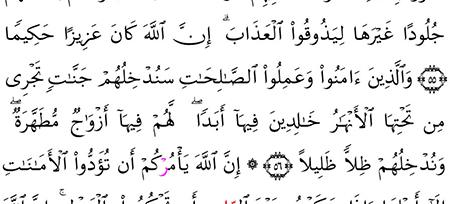 جُلُودًا غَيْرَهَا لِيَذُوقُوا۟ ٱلْعَذَابَ ۗ إِنَّ ٱللَّهَ كَانَ عَزِيزًا حَكِيمًا
﴿٥٥﴾ وَٱلَّذِينَ ءَامَنُوا۟ وَعَمِلُوا۟ ٱلصَّـٰلِحَـٰتِ سَنُدْخِلُهُمْ جَنَّـٰتٍ تَجْرِى
مِن تَحْتِهَا ٱلْأَنْهَـٰرُ خَـٰلِدِينَ فِيهَآ أَبَدًا ۖ لَّهُمْ فِيهَآ أَزْوَٰجٌ مُّطَهَّرَةٌ ۖ
وَنُدْخِلُهُمْ ظِلًّا ظَلِيلًا ﴿٥٦﴾ ۞ إِنَّ ٱللَّهَ يَأْمُرُكُمْ أَن تُؤَدُّوا۟ ٱلْأَمَـٰنَـٰتِ